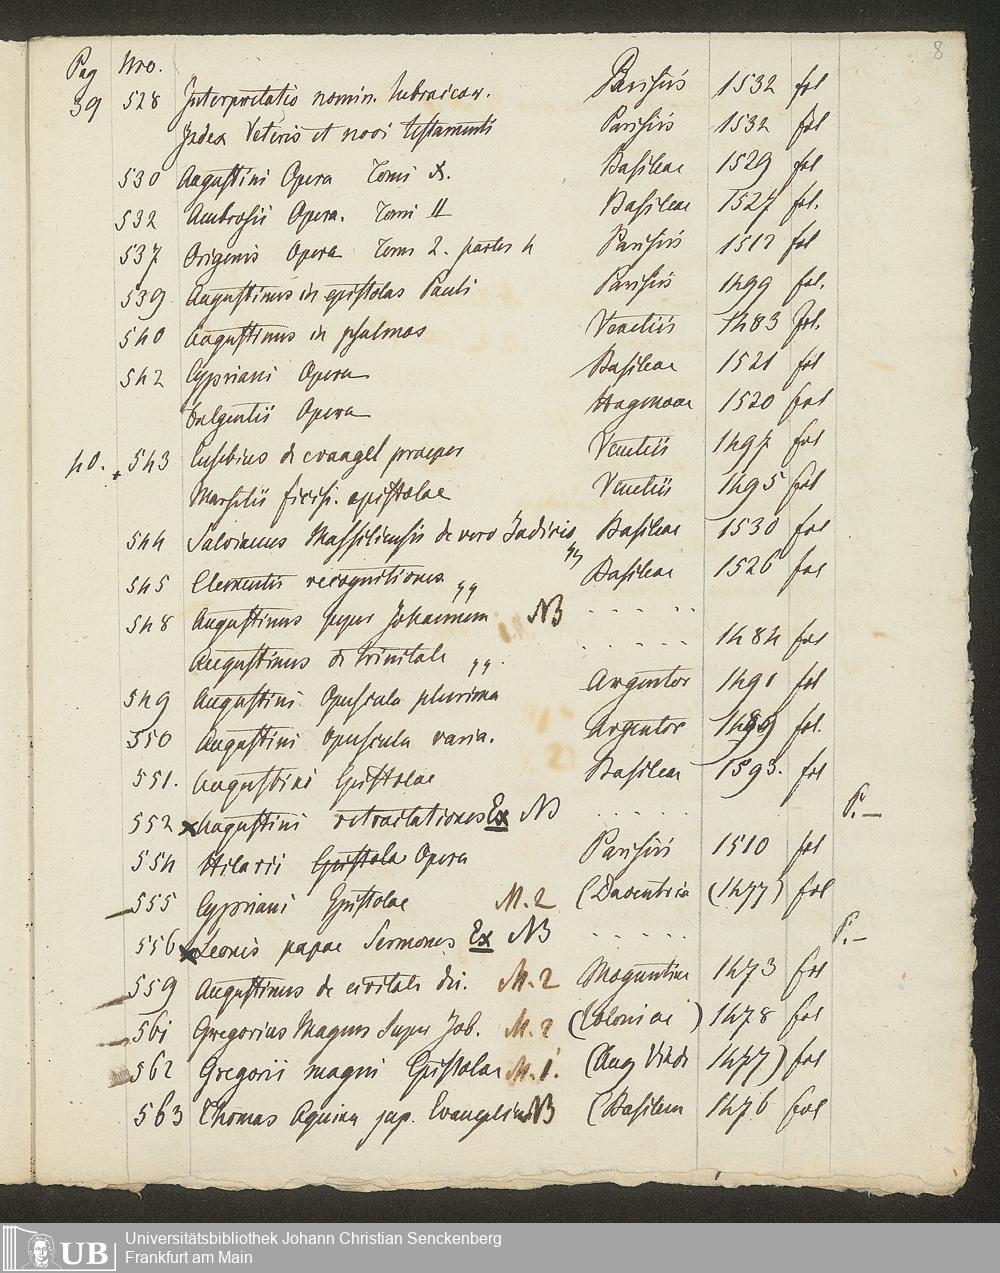 8
Pag Nro.
39 528 Interpretatio nomin. hebraicar. Parisiis 1532 fol
Index Veteris et novi testamenti Parisiis 1532 fol
530 Augustini Opera Tomi X. Basileae 1529 fol
532 Ambrosii Opera. Tomi II Basileae 1527 fol.
537 Origenis Opera Tom 2. partes 4 Parisiis 1512 fol
539 Augustinus in epistolas Pauli Parisiis 1499 fol.
540 Augustinus in psalmos Venetiis 1483 fol.
542 Cypriani Opera Basileae 1521 fol
Fulgentii Opera Hagenoae 1520 fol
40. + 543 Eusebius de evangel praepar Venetiis 1497 fol
Marsilii ficisi. epistolae Venetiis 1495 fol
544 Salvianus Massiliensis de vero Judicio Basileae 1530 fol
545 Clementis recognitiones Basileae 1526 fol
548 Augustinus super Johannem NB . . . . . .
Augustinus de trinitate . . . . . 1484 fol
549 Augustini Opuscula plurima Argentor 1491 fol
550 Augustini opuscula varia. Argentor fol.
551. Augustini Epistolae Basileae 1593. fol
552 x Augustini retractationes Ex NB . . . . . P. —
554 Hilarii Epistolae Opera Parisiis 1510 fol
555 Cypriani Epistolae M. 2 (Daventria (1477) fol
556 x Leonis papae Sermones Ex NB . . . . . . P. —
559 Augustinus de civitate dei. M. 2 Moguntiae 1473 fol
561 Gregorius Magnus Super Job. M. 2 (Coloniae) 1478 fol
562 Gregorii magni Epistolae M. 1. (Aug Vindi 1477) fol
563 Thomas Aquina sup. Evangelia NB (Basileae 1476 fol
UB
Universitätsbibliothek Johann Christian Senckenberg
Frankfurt am Main